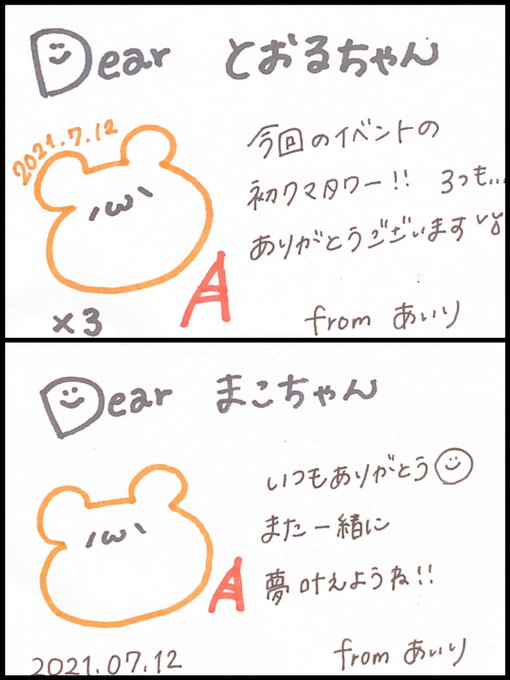 Dear とおるちゃん
2021.7.12
今回のイベントの
初クマタワー!! 3つも...
ありがとうございます
×3
from あいり
Dear まこちゃん
いつもありがとう
また一緒に
夢叶えようね!!
2021.07.12
from あいり